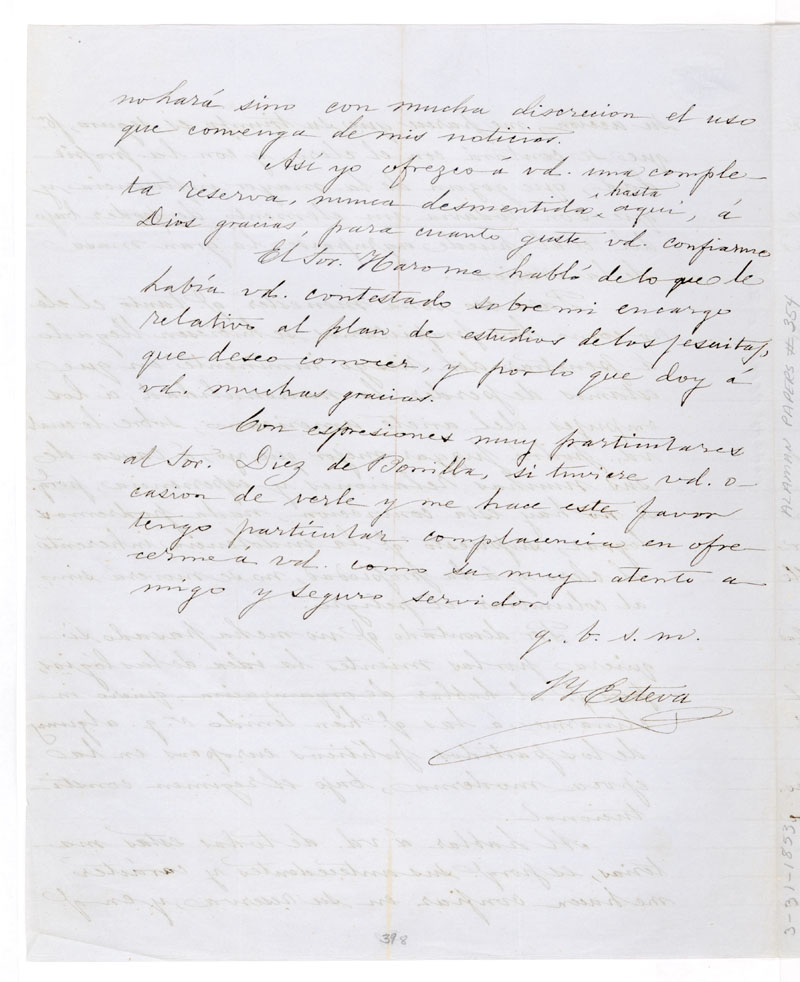 no hará sino con mucha discrecion el uso
que convenga de mis noticias.
Así yo ofrezco á vd. una comple-
ta reserva, nunca desmentida hasta aquí, á
Dios gracias, para cuanto guste vd. confiarme
El Sor. Haro me habló de lo que le
había vd. contestado sobre mi encargo
relativo al plan de estudios de los jesuitas,
que deseo conocer, y por lo que doy á
vd. muchas gracias.
Con espresiones muy particulares
al Sor. Diez de Bonilla, si tuviere vd. o-
casion de verle y me hace este favor
tengo particular complacencia en ofre-
cerme á vd. como su muy atento a-
migo y seguro servidor
q. b. s. m.
Esteva
398
ALAMAN PAPERS # 354
3-31-1853